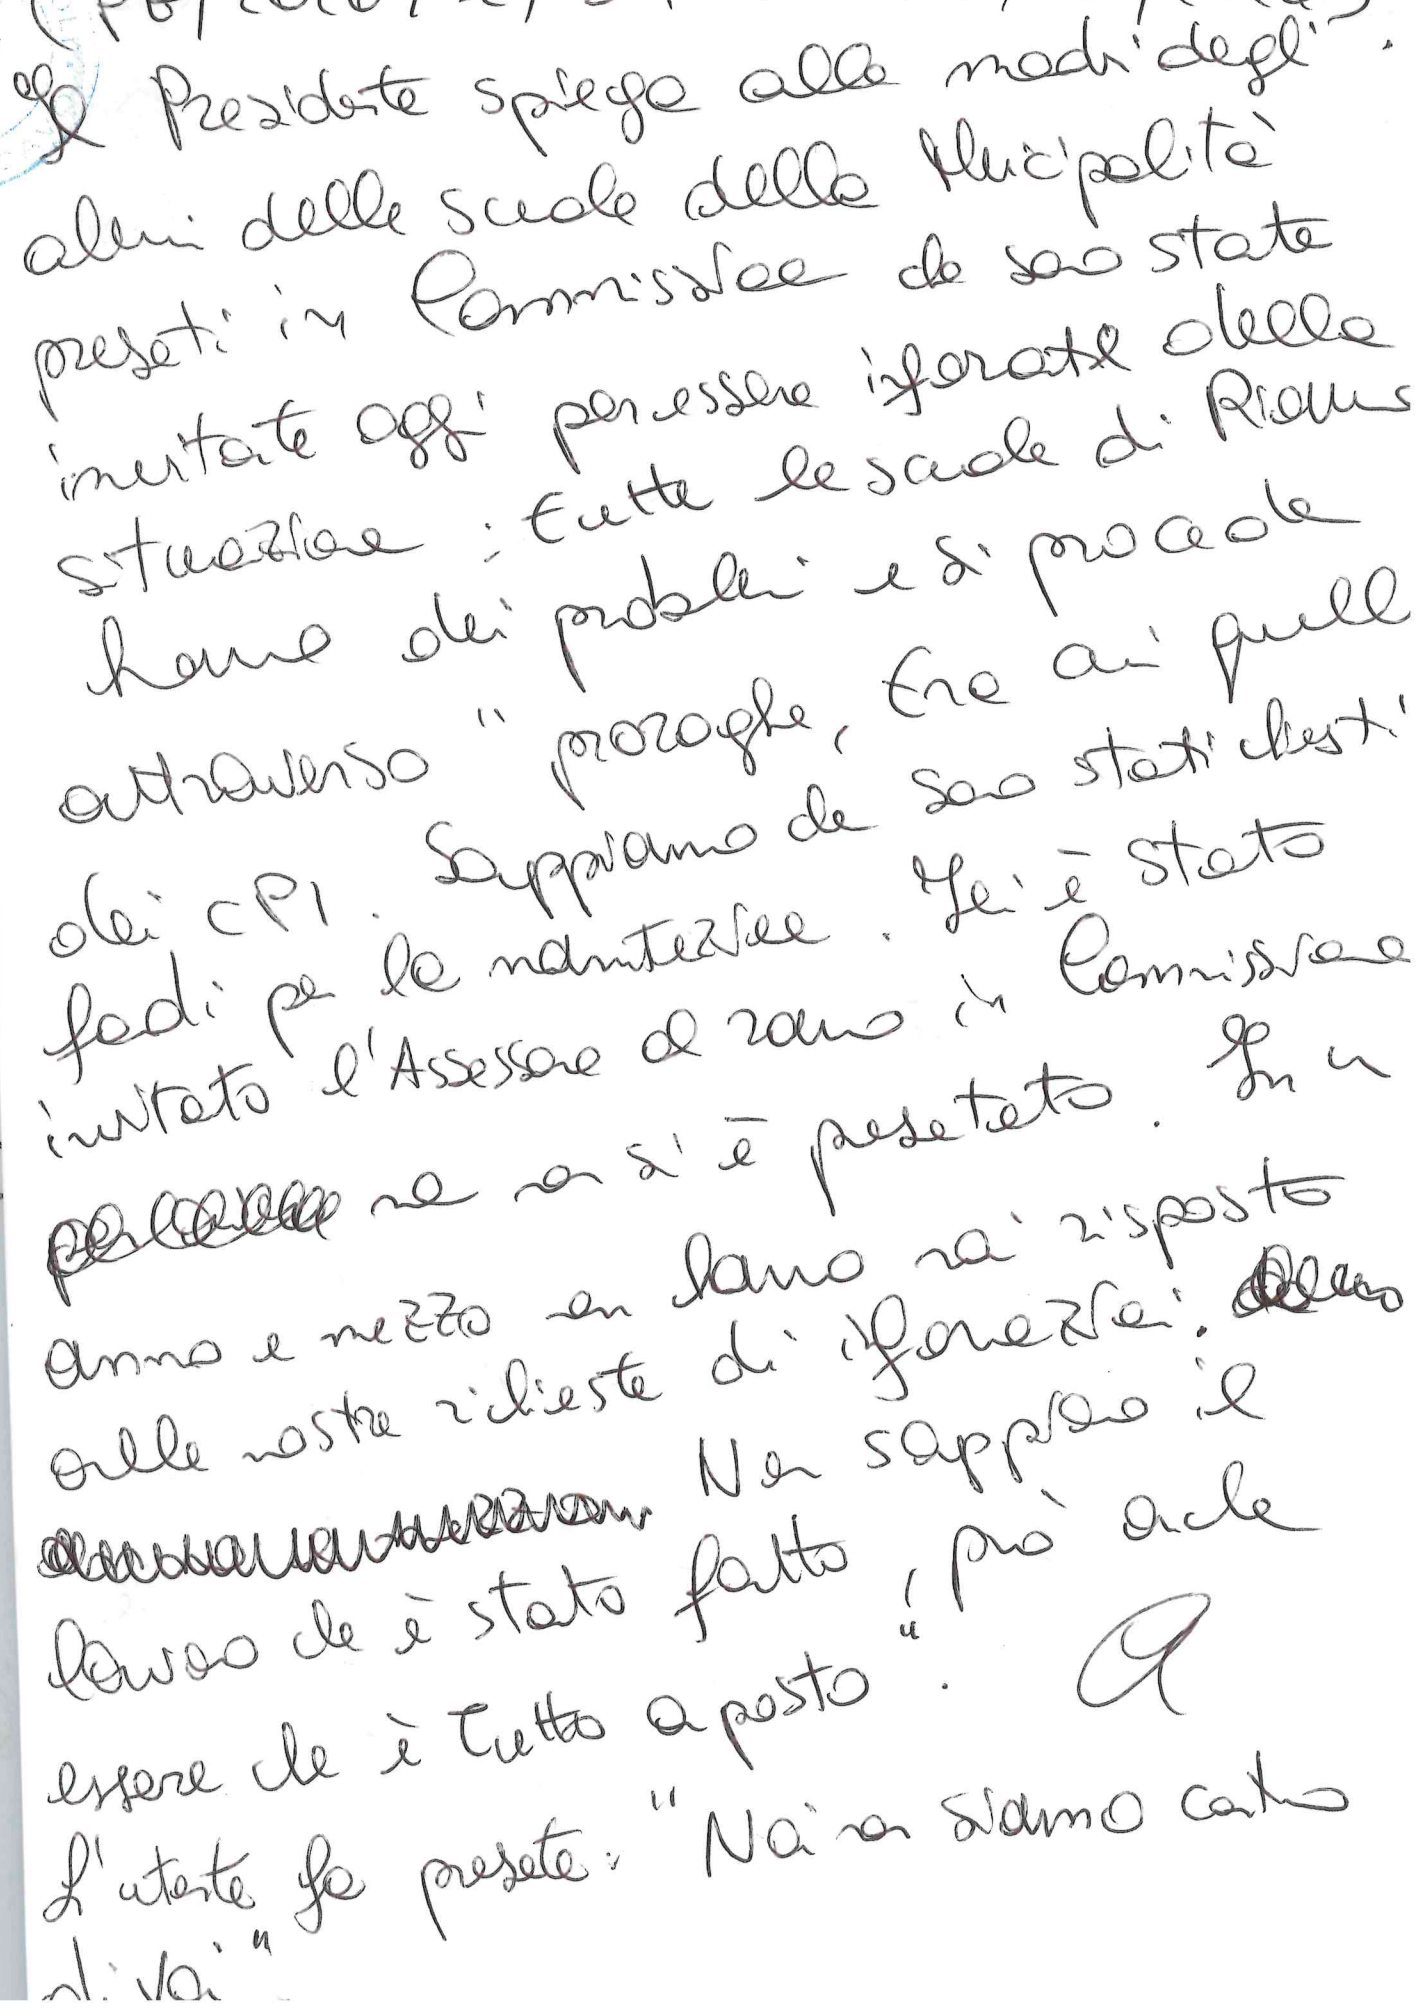 Il Presidente spiega alle madri degli
alunni delle scuole della Municipalità
presenti in Commissione che sono state
invitate oggi per essere informate della
situazione: tutte le scuole di Pianura
hanno dei problemi e si procede
attraverso " proroghe, tra cui quelle
dei CPI. Sappiamo che sono stati chiesti
fondi per la manutenzione. Ieri è stato
invitato l'Assessore al ramo in Commissione
ma non si è presentato. In un
anno e mezzo non hanno mai risposto
alle nostre richieste di informazioni.
Non sappiamo il
lavoro che è stato fatto, può anche
essere che è tutto a posto".
L'utente fa presente: "Noi non siamo contro
di voi"